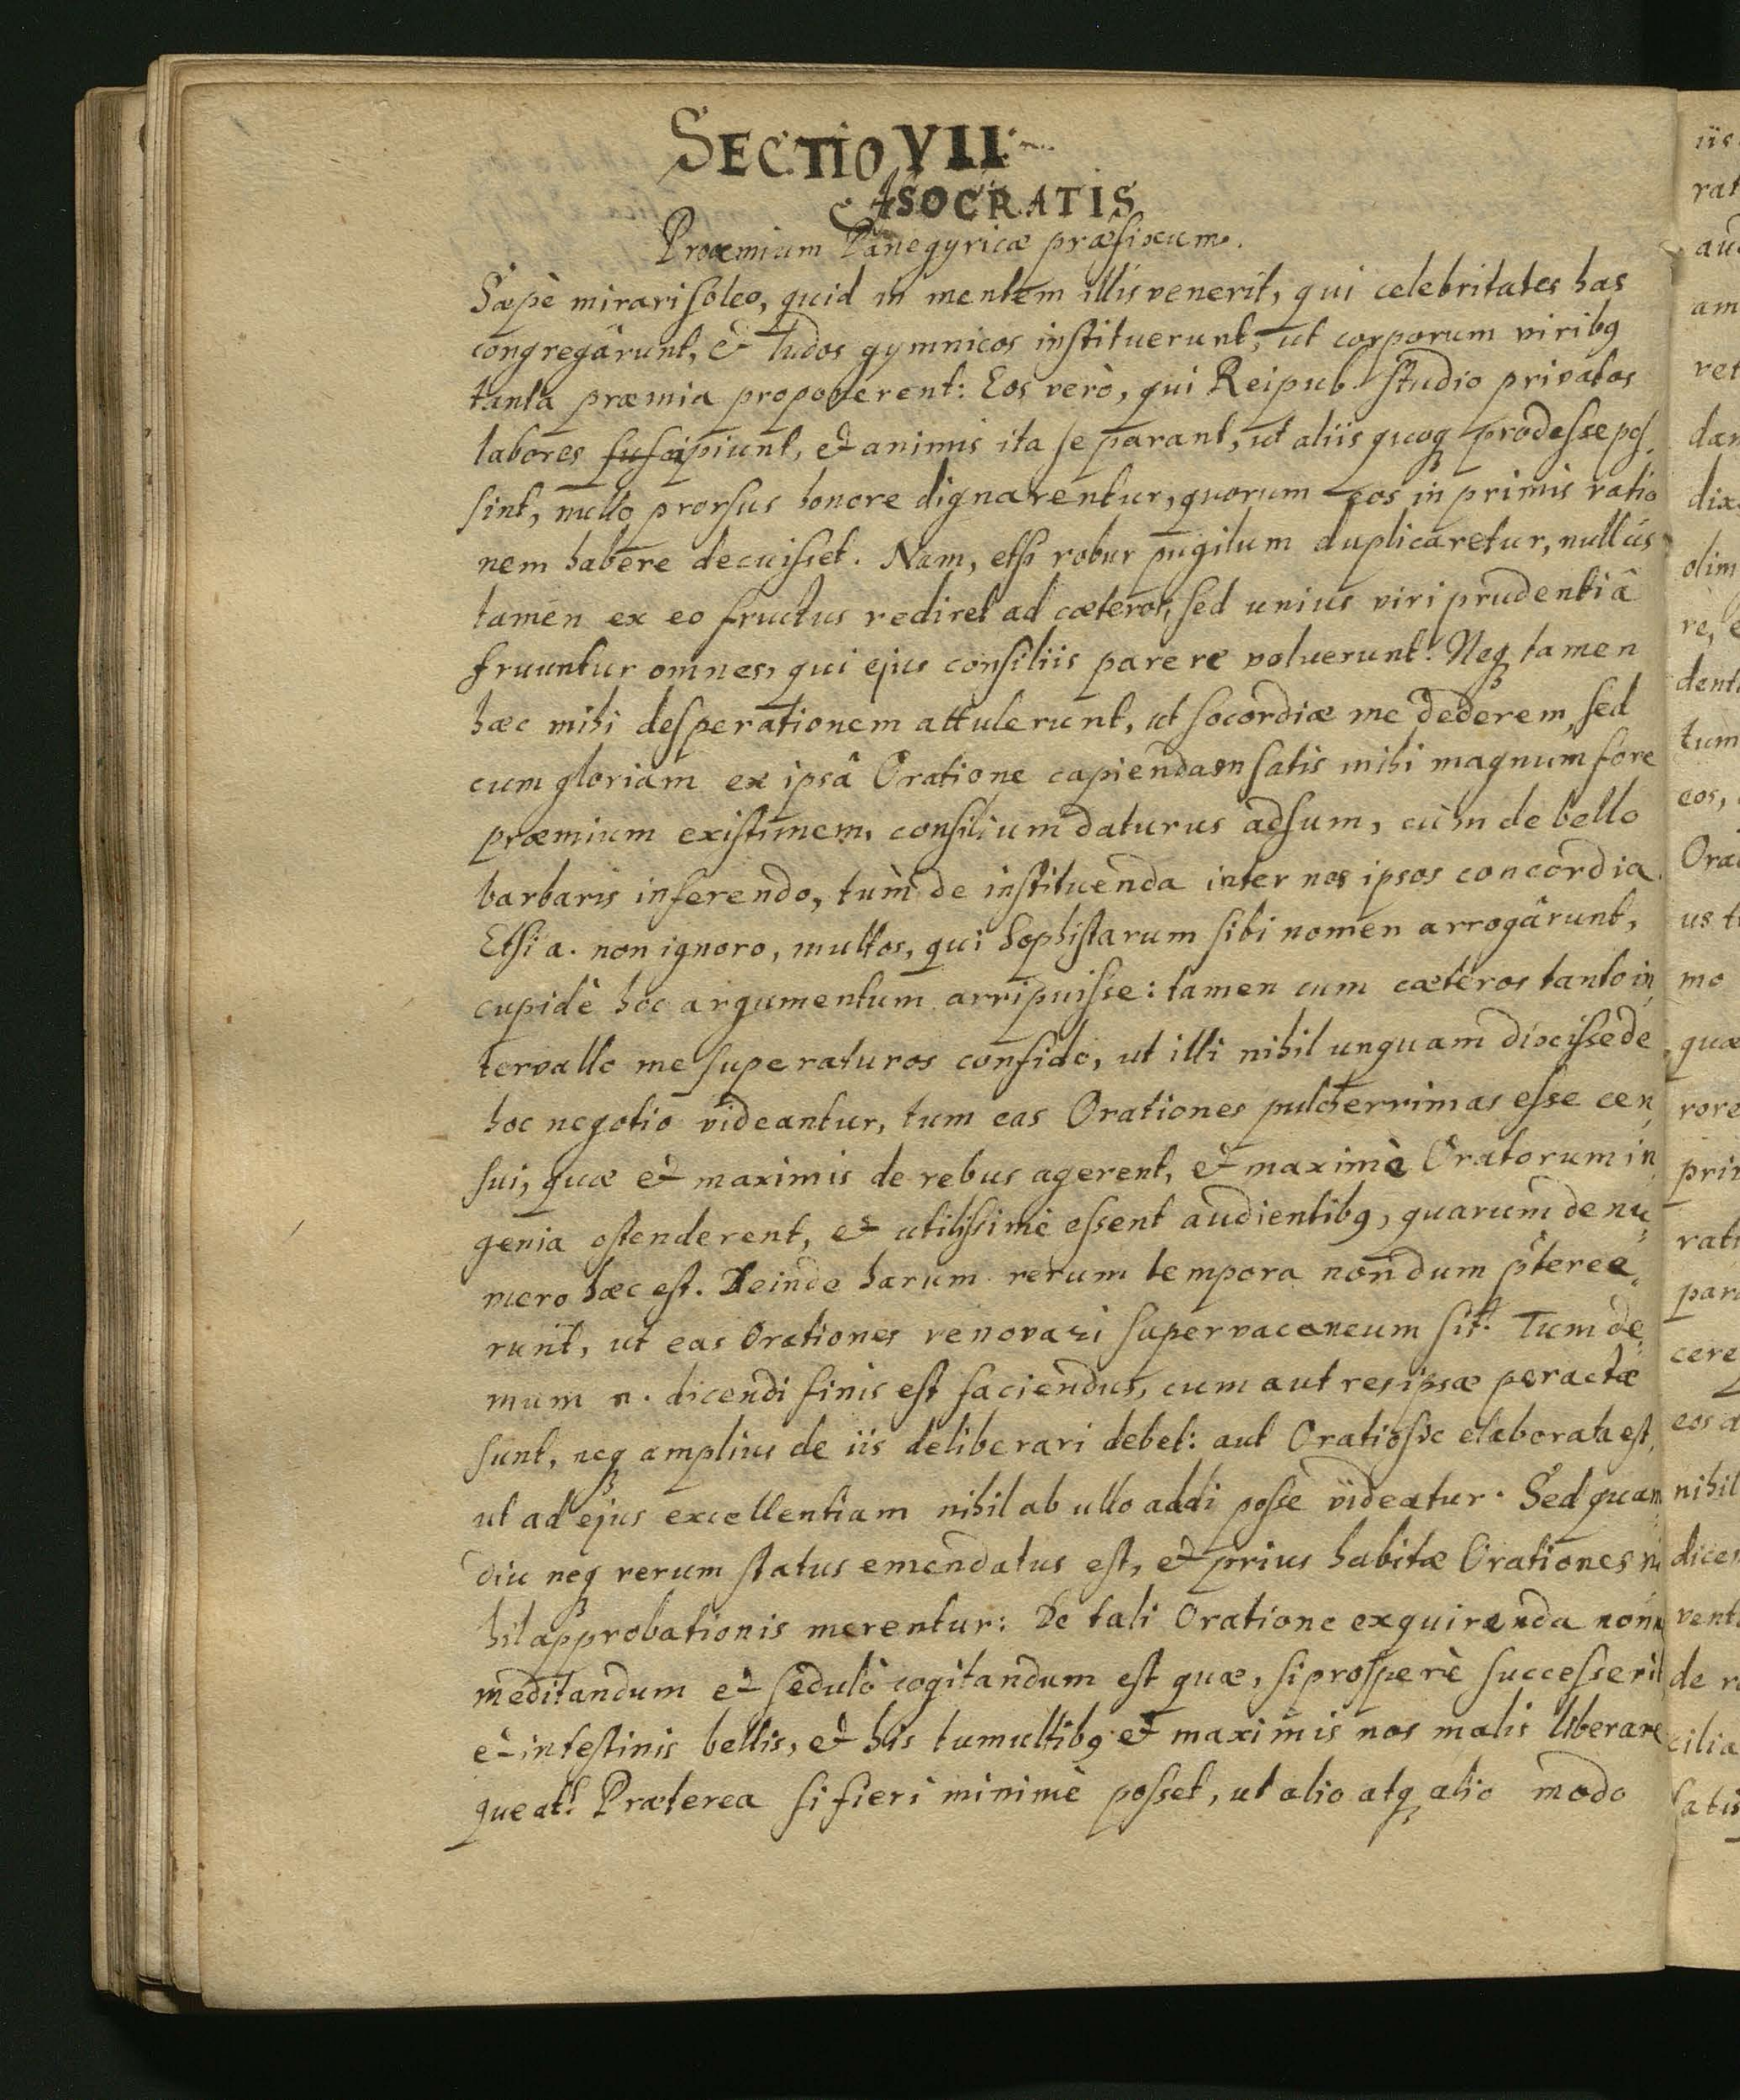 SECTIO VII.
ISOCRATIS
Proœmium Panegyricæ præfixum.
Sæpè mirari soleo, quid in mentem illis venerit, qui celebritates has
congregârunt, & ludos gymnicos instituerunt, ut corporum viribq
tanta præmia proponerent: Eos verò, qui Reipub. studio privatos
labores suscipiunt, & animis ita se parant, ut aliis quoq prodesse pos,
sint, nullo prorsus honore dignarentur, quorum eos in primis ratio
nem habere decuisset. Nam, etsi robur pugilum duplicaretur, nullus
tamen ex eo fructus rediret ad cæteros, sed unius viri prudentiâ
fruuntur omnes, qui ejus consiliis parere voluerunt. Neq tamen
hæc mihi desperationem attulerunt, ut socordiæ me dederem, sed
cum gloriam ex ipsâ Oratione capiendam satis mihi magnum fore
præmium existimem, consilium daturus adsum, cùm de bello
barbaris inferendo, tùm de instituenda inter nos ipsos concordia.
Etsi a. non ignoro, multos, qui Sophistarum sibi nomen arrogârunt,
cupidè hoc argumentum arripuisse: tamen cum cæteros tanto in,
tervallo me superaturos confido, ut illi nihil unquam dixisse de
hoc negotio videantur, tum eas Orationes pulcherrimas esse cen,
sui, quæ & maximis de rebus agerent, & maximè Oratorum in
genia ostenderent, & utilissimè essent audientibq, quarum de nu,
mero hæc est. Deinde harum rerum tempora nondum pͥteree,
runt, ut eas Orationes renovari supervacaneum sit. Tum de,
mum n. dicendi finis est faciendus, cum aut res ipsæ peractæ
sunt, neq amplius de iis deliberari debet: aut Oratio sic elaborata est,
ut ad ejus excellentiam nihil ab ullo addi posse videatur. Sed quam,
diu neq rerum status emendatus est, & prius habitæ Orationes ni
hil approbationis merentur: De tali Oratione exquirenda nonn
meditandum & sedulò cogitandum est quæ, si prosperè successerit
& intestinis bellis, & his tumultibq & maximis nos malis liberare
queat? Præterea si fieri minimè posset, ut alio atq alio modo
iis
rat
au
am
ret
dan
dix
olim
re, e
denti
tum
eos,
Ora
us t
mo
quæ
rore
prin
rati
par
cere
eos a
nihil
dicen
vent
de r
cilia
satis